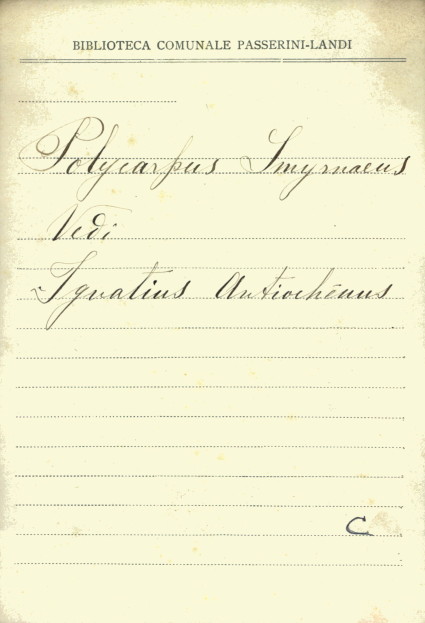 BIBLIOTECA COMUNALE PASSERINI-LANDI
Polycarpus Smyrnaeus
Vedi
Ignatius Antiochēnus
C